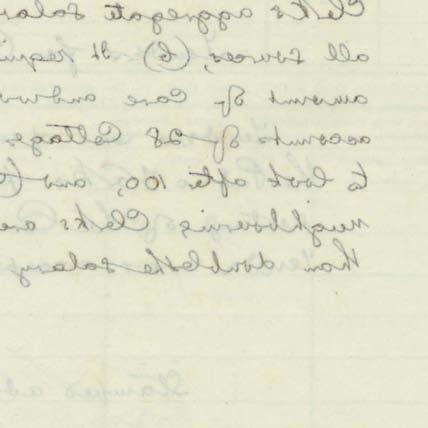 Clerks aggregate salar
all sources, (b) It requi
amount of care and wo
accounts of 28 Cottages
to look after 100, and
neighbouring Clerks are
than double the salary